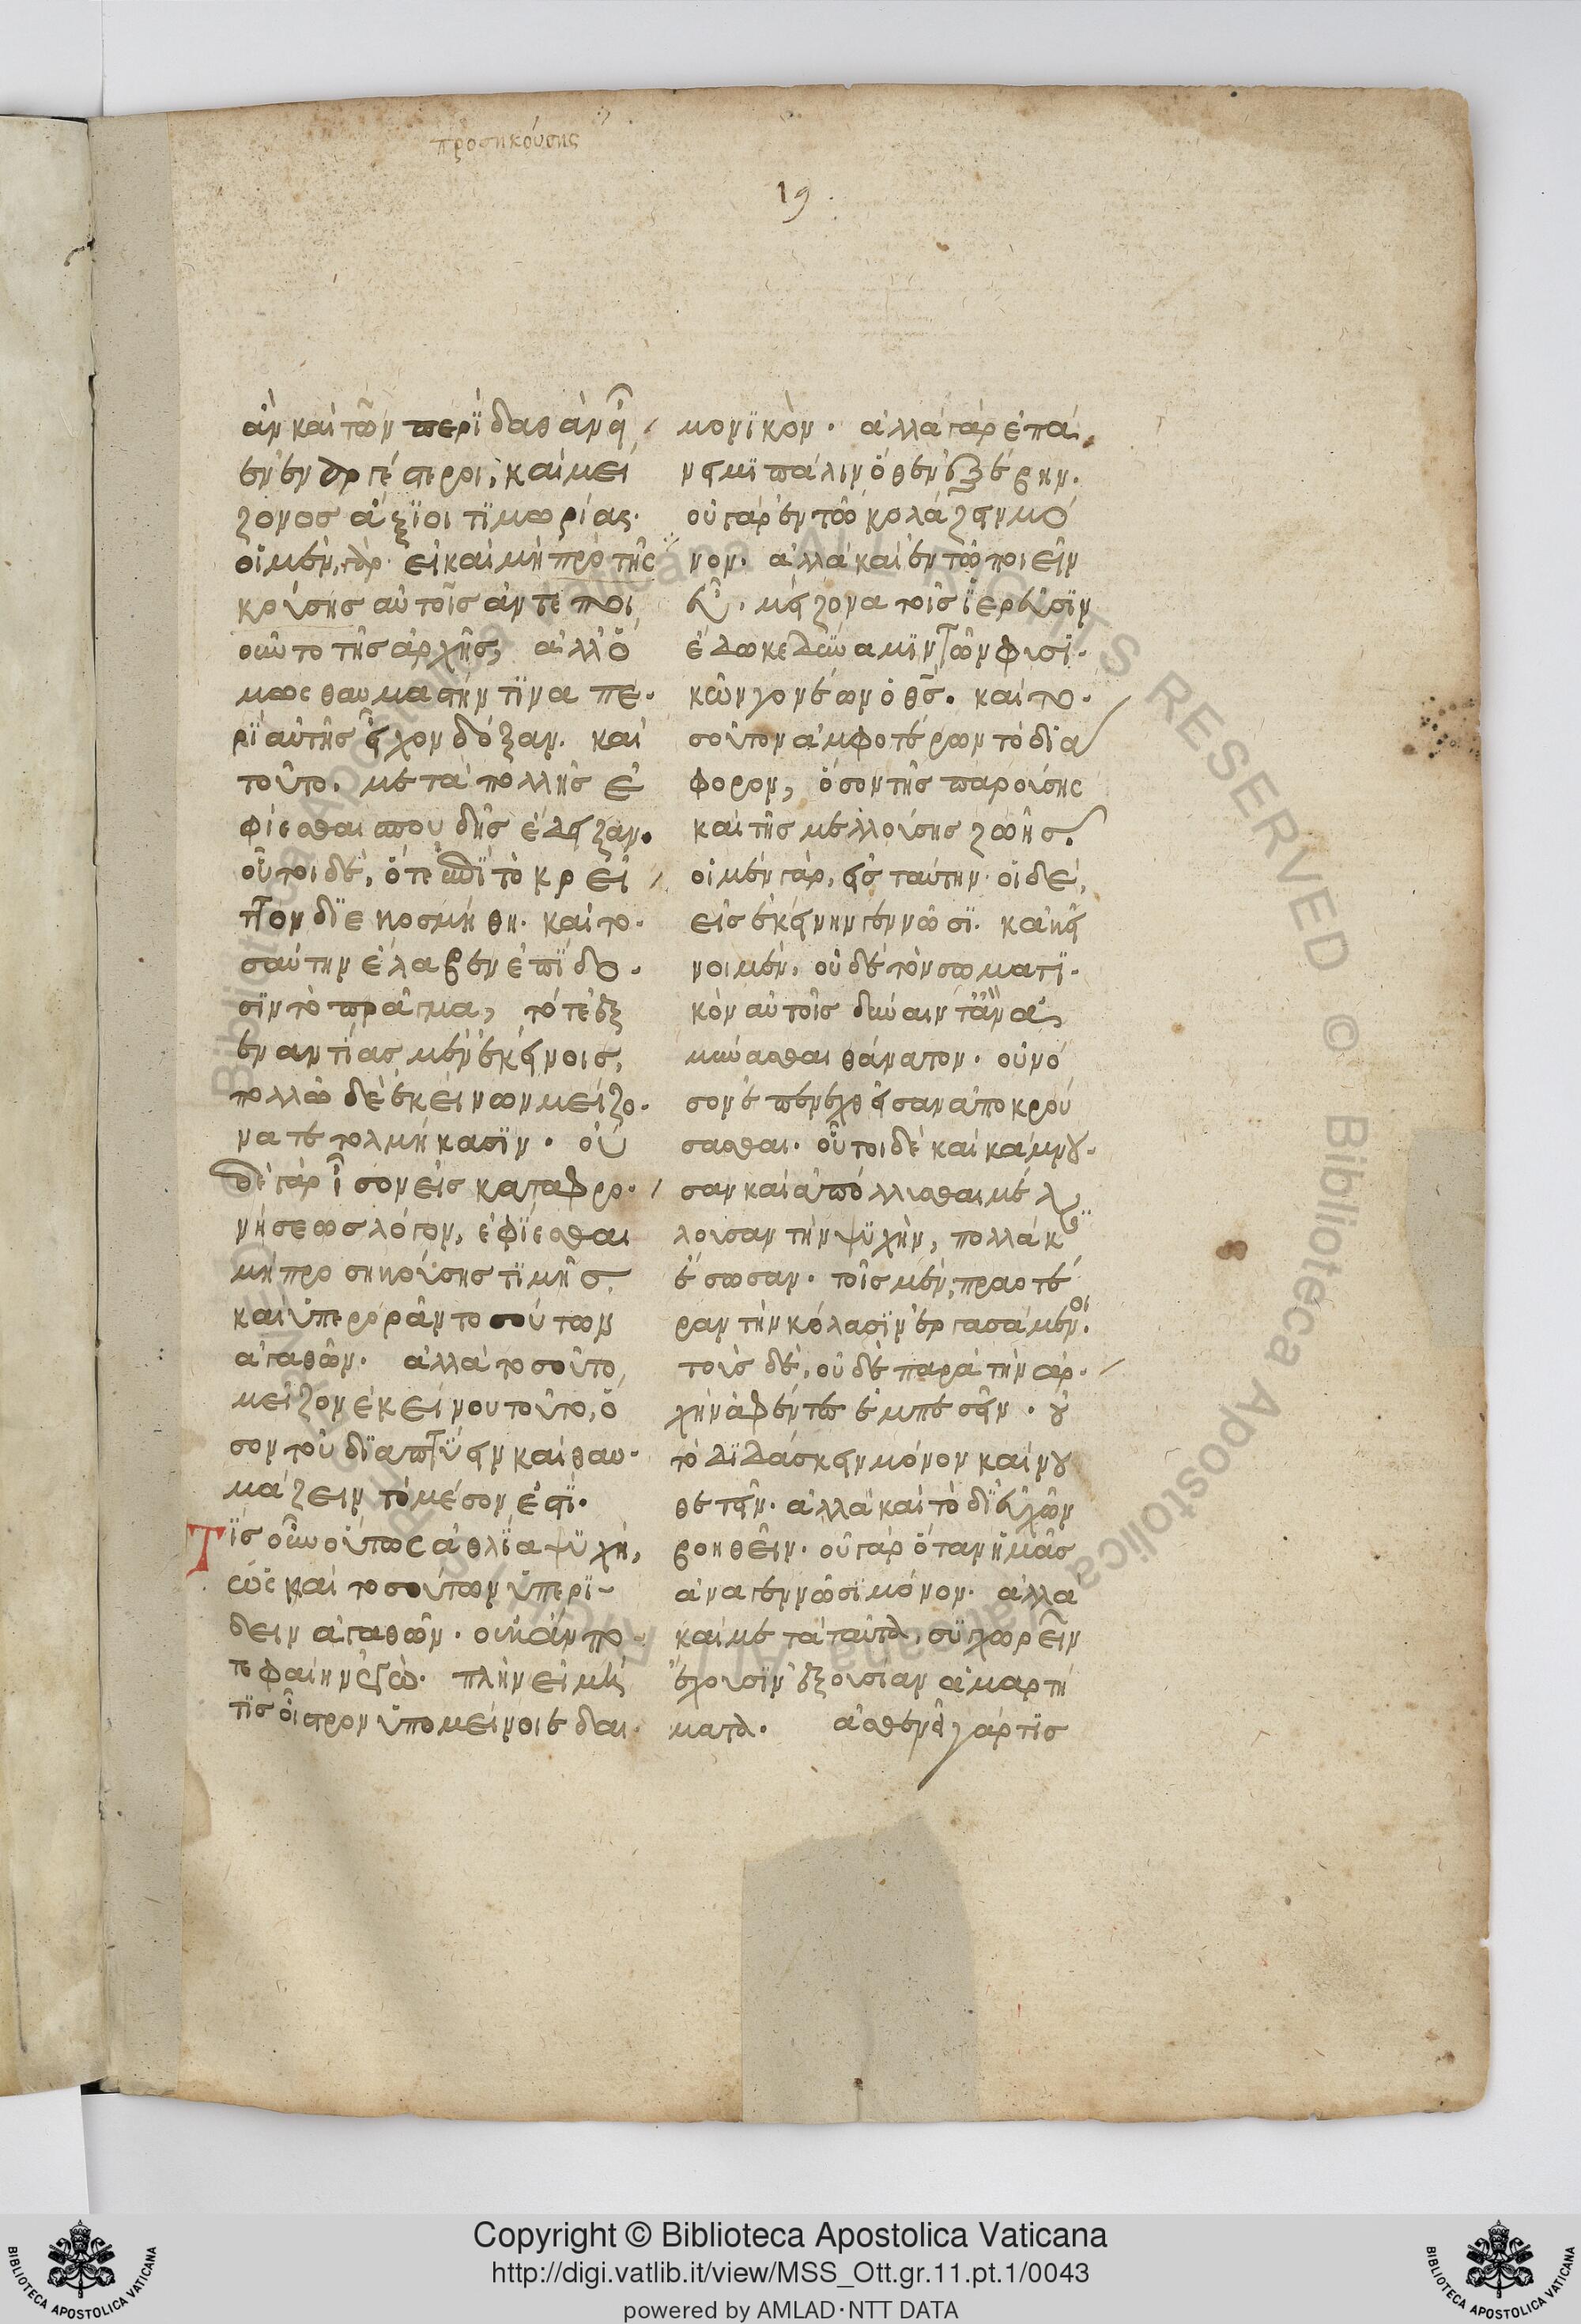 προσηκούσης
19
ἂν καὶ τῶν περὶ δαθὰν εἶ
εν ἐναργέστεροι, καὶ μεί
ζονος ἄξιοι τιμωρίας.
οἱ μὲν γὰρ εἰ καὶ μὴ προ της
κρούσης αὐτοῖς ἀντεποι
οῦντο τῆς ἀρχῆς, ἀλλ' ὅ
μως θαυμαστήν τινα πε
ρὶ αὐτῆς εἶχον δόξαν. καὶ
τοῦτο μετὰ πολλῆς ἐ
φίεσθαι σπουδῆς ἔδειξαν.
οὗτοι δὲ, ὅτε ἐπὶ τὸ κρεῖ
ττον διεκοσμήθη. καὶ το
σαύτην ἔλαβεν ἐπίδο
σιν τὸ πρᾶγμα, τότε ἐξ
εναντίας μὲν ἐκείνοις,
πολλῶ δὲ ἐκείνων μείζο
να τετολμήκασιν. οὐ
δὲ γὰρ ἶσον εἰς καταφρο
νήσεως λόγον, ἐφίεσθαι
μὴ προσηκούσης τιμῆς.
καὶ ὑπερορᾶν τοσούτων
ἀγαθῶν. ἀλλὰ τοσοῦτο
μεῖζον ἐκείνου τοῦτο, ὅ
σον τοῦ διαπτύειν καὶ θαυ
μάζειν τὸ μέσον ἐστί.
Τίς οὖν οὕτως ἀθλία ψυχὴ,
ὡς καὶ τοσούτων ὑπερι
δεῖν ἀγαθῶν. οὐκ ἄν πο
τε φαίην ἐγὼ. πλὴν εἰ μή
τις οἶστρον ὑπομείνοιε δαι
μονικὸν. ἀλλὰ γὰρ ἐπά
νειμι πάλιν ὅθεν ἐξέβην.
οὐ γὰρ ἐν τῶ κολάζειν μό
νον. ἀλλὰ καὶ ἐν τῶ ποιεῖν
εὖ. μείζονα τοῖς ἱερεῦσιν
ἔδωκε δύναμιν τῶν φυσι
κῶν γονέων ὁ θς. καὶ το
σοῦτον ἀμφοτέρων τὸ διά
φορον, ὅσον τῆς παρούσης
καὶ τῆς μελλούσης ζωῆς.
οἱ μὲν γὰρ, εἰς ταύτην οἱ δὲ,
εἰς ἐκείνην γεννῶσι. κἀκεῖ
νοι μὲν, οὐδὲ τὸν σωματι
κὸν αὐτοῖς δύναιντ' ἂν ἀ
μύνασθαι θάνατον. οὐ νό
σον ἐπενεχθεῖσαν ἀποκρού
σασθαι. οὗτοι δὲ καὶ κάμνου
σαν καὶ ἀπόλλυσθαι μέλ
λουσαν τὴν ψυχὴν, πολλάκ
ἔσωσαν. τοῖς μὲν, πραοτέ
ραν τὴν κόλασιν ἐργασάμενοι.
τοὺς δὲ, οὐδὲ παρὰ τὴν ἀρ
χὴν ἀφέντες ἐμπεσεῖν. οὐ
τὸ διδάσκειν μόνον καὶ νου
θετεῖν. ἀλλὰ καὶ τὸ δι' εὐχῶν
βοηθεῖν. οὐ γὰρ ὅταν ἡμᾶς
ἀναγεννῶσι μόνον. ἀλλὰ
καὶ μετὰ ταῦτα συγχωρεῖν
ἔχουσιν ἐξουσίαν ἁμαρτή
ματα. ἀσθενεῖ γάρ τις
Copyright © Biblioteca Apostolica Vaticana
http://digi.vatlib.it/view/MSS_Ott.gr.11.pt.1/0043
powered by AMLAD·NTT DATA